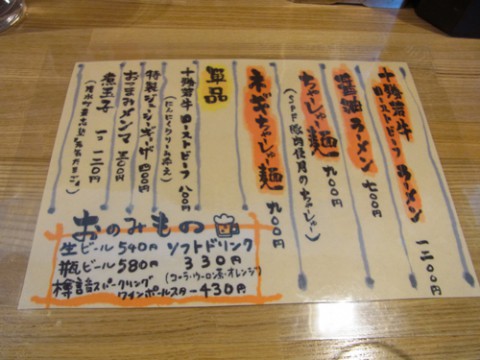 十勝若牛
ローストビーフ ラーメン 一二〇〇円
醤油ラーメン 七〇〇円
ちゃーしゅー麺 九〇〇円
(SPF豚肉使用のちゃーしゅー)
ネギちゃーしゅー麺 九〇〇円
単品
十勝若牛ローストビーフ 八〇〇円
(にんにくクリーム添え)
特製ジューシーギョーザ 四〇〇円
おつまみメンマ 三〇〇円
煮玉子 一二〇円
おのみもの
生ビール 540円
瓶ビール 580円
樽詰スパークリング
ワインポールスター 430円
ソフトドリンク
330円
(コーラ・ウーロン茶・オレンジ)